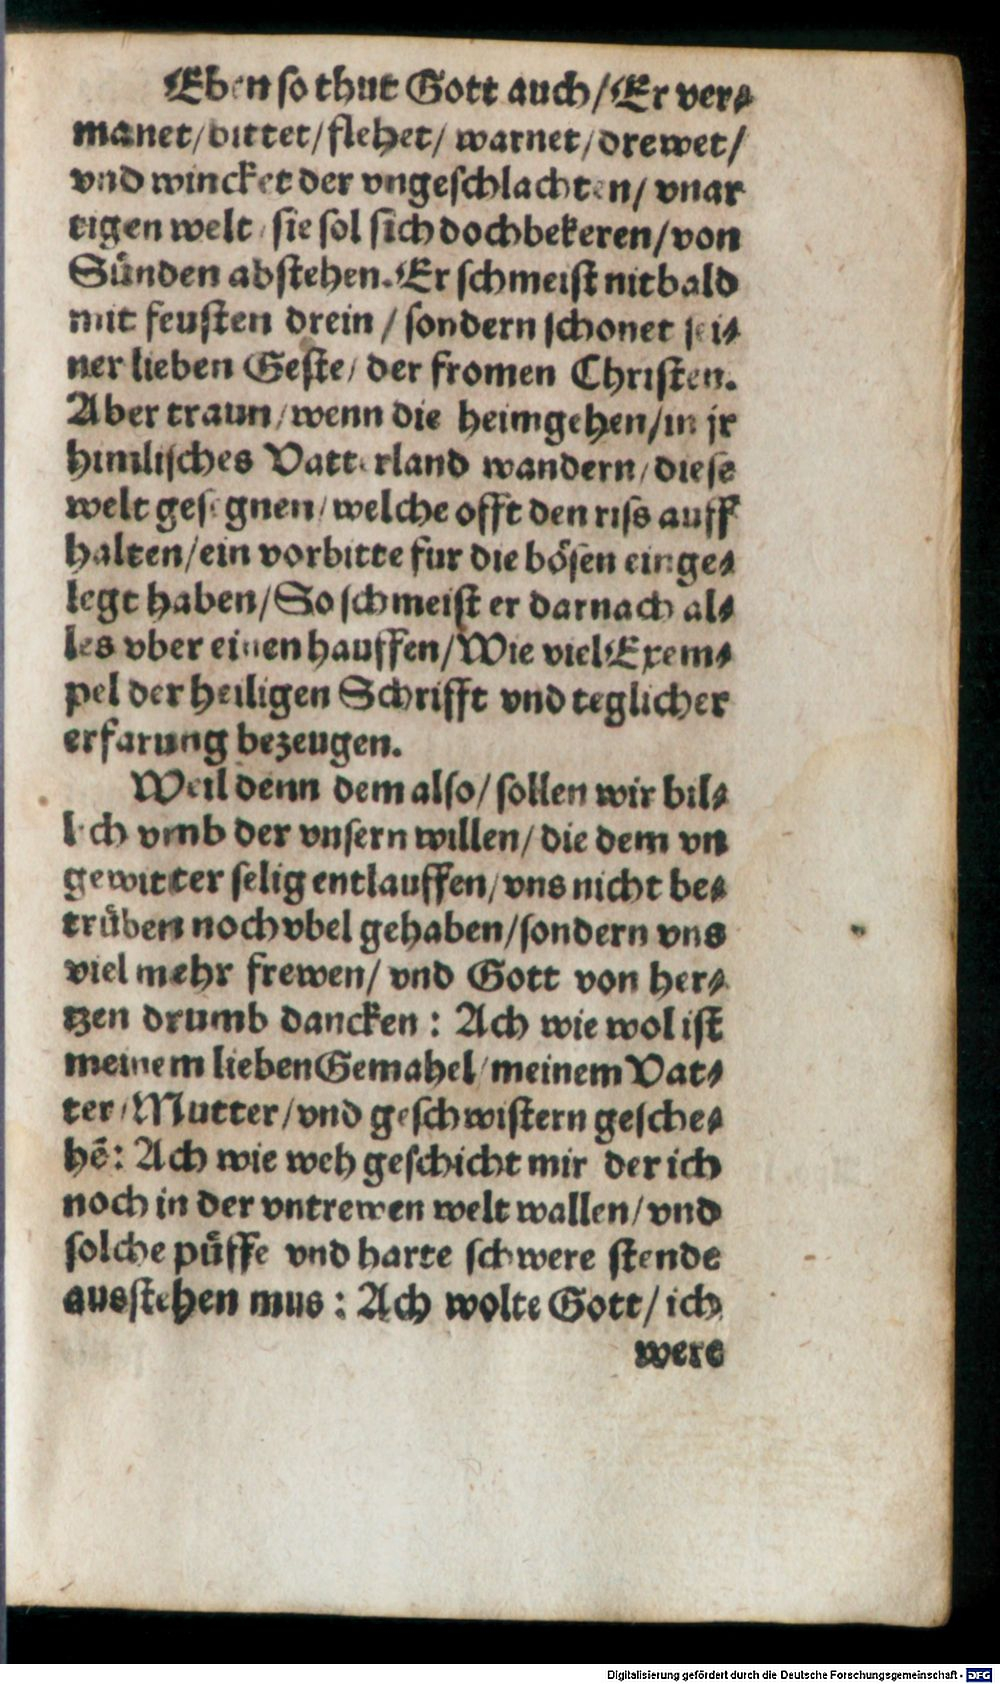 Eben so thut Gott auch/ Er ver⸗
manet/ bittet/ flehet/ warnet/ drewet/
vnd wincket der vngeschlachten/ vnar
tigen welt/ sie sol sich doch bekeren/ von
Sünden abstehen. Er schmeist nit bald
mit feusten drein / sondern schonet sei⸗
ner lieben Geste/ der fromen Christen.
Aber traun/ wenn die heimgehen/ in jr
himlisches Vatterland wandern/ diese
welt gesegnen/ welche offt den riss auff
halten/ ein vorbitte fur die bösen einge⸗
legt haben/ So schmeist er darnach al⸗
les vber einen hauffen/ Wie viel Exem⸗
pel der heiligen Schrifft vnd teglicher
erfarung bezeugen.
Weil denn dem also/ sollen wir bil⸗
lich vmb der vnsern willen/ die dem vn
gewitter selig entlauffen/ vns nicht be⸗
trüben noch vbel gehaben/ sondern vns
viel mehr frewen/ vnd Gott von her⸗
tzen drumb dancken : Ach wie wol ist
meinem lieben Gemahel/ meinem Vat⸗
ter/ Mutter/ vnd geschwistern gesche⸗
hē: Ach wie weh geschicht mir der ich
noch in der vntrewen welt wallen/ vnd
solche püffe vnd harte schwere stende
ausstehen mus : Ach wolte Gott/ ich
were
Digitalisierung gefördert durch die Deutsche Forschungsgemeinschaft - DFG